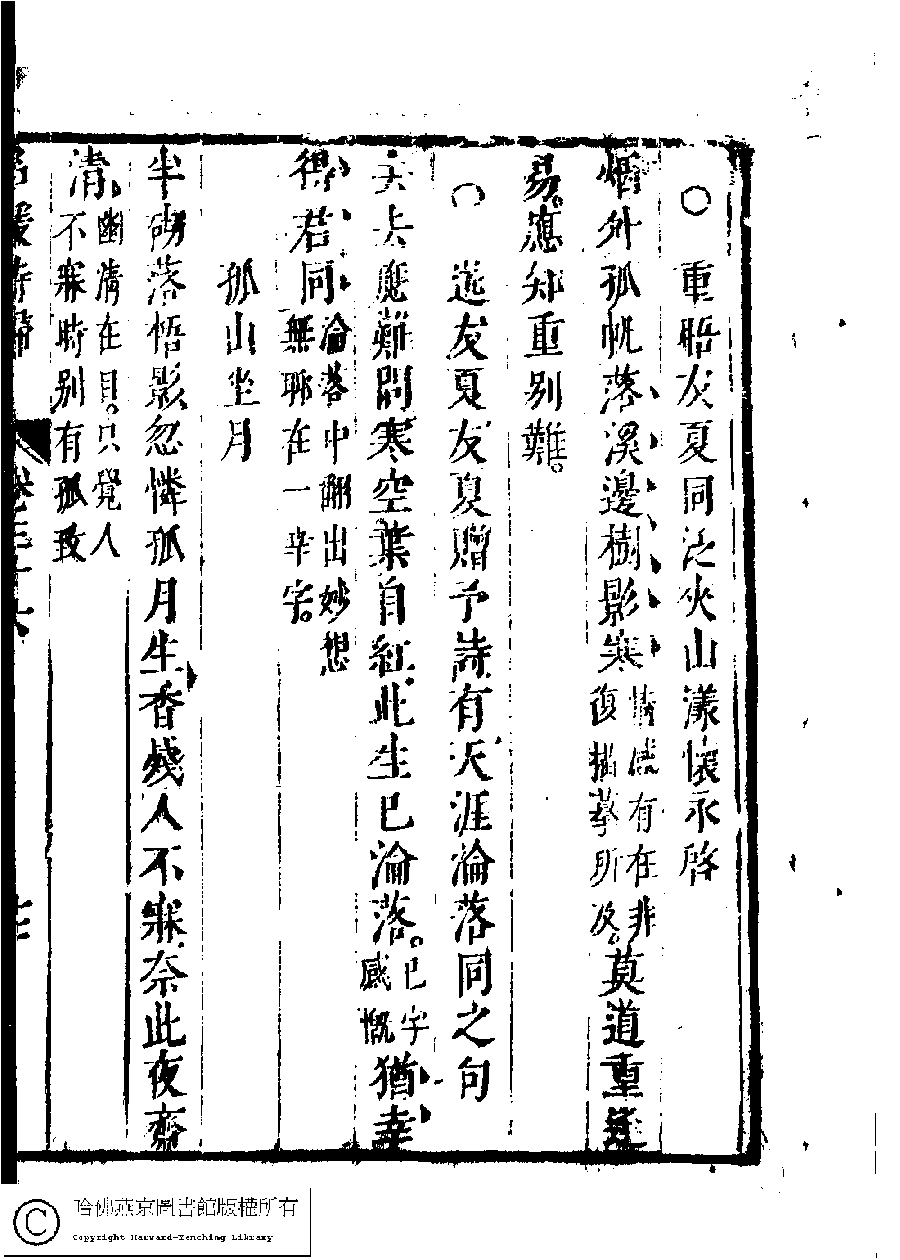 ○ 重晤友夏同泛夾山漾懷永啓
外孤帆落溪邊樹影寒情感有在非復描摹所及。莫道重逢
易。應知重別難。
○ 送友夏友夏贈予詩有天涯淪落同之句
去去應難問寒空葉自紅此生已淪落。已字感慨猶幸
得君同淪落中翻出妙想無聊在一幸字。
孤山坐月
半砌落梧影忽憐孤月生香殘人不寐奈此夜齋
清幽清在目。只覺人不寐時別有孤致
名媛詩歸 卷三十六
哈佛燕京圖書館版權所有
Copyright Harvard-Yenching Library